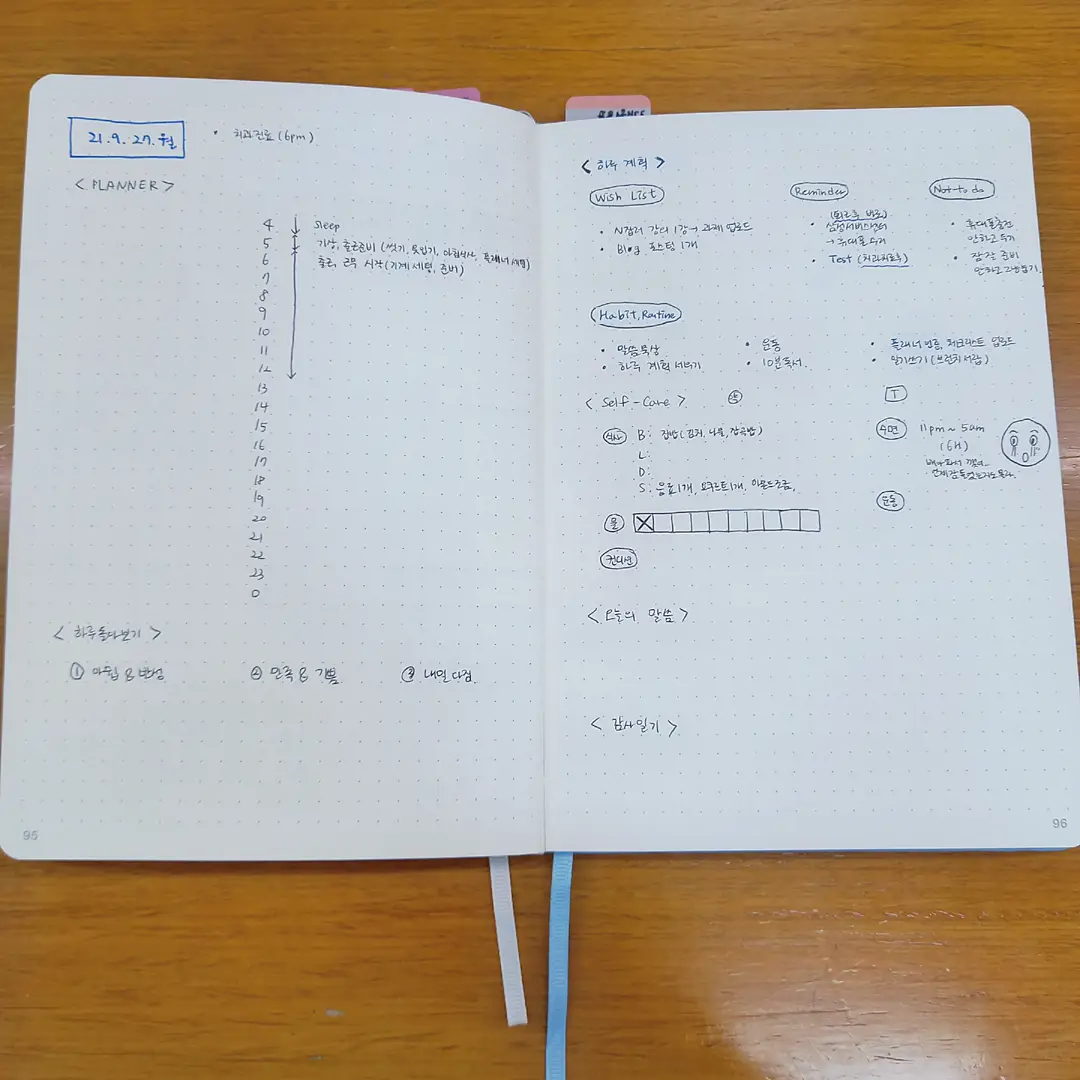 21.9.27.월
• 치과진료 (6pm)
< PLANNER >
4 sleep
5 기상, 출근준비 (씻기, 옷입기, 아침식사, 플래너 세팅)
6 출근, 근무 시작 (기계 세팅, 준비)
7
8
9
10
11
12
13
14
15
16
17
18
19
20
21
22
23
0
< 하루돌아보기 >
① 아쉼 & 반성 ② 만족 & 기쁨 ③ 내일 다짐
95
< 하루 계획 >
Wish List
• N잡러 강의 1강→ 과제 업로드
• Blog 포스팅 1개
Reminder
(퇴근후 바로)
삼성서비스센터
→ 휴대폰 수리
• Test (치과치료후)
Not-to do
• 휴대폰충전
안하고 두기
• 잠잘 준비
안하고
Habit, Routine
• 말씀 묵상
• 하루 계획 세우기
• 운동
• 10분독서.
• 플래너 인증, 체크리스트 업로드
• 일기쓰기 (브런치서랍)
< Self-Care >
T
식사 B: 집밥 (김치, 나물, 잡곡밥)
L:
D:
S: 음료 1개, 요쿠르트 1개, 아몬드 조금,
물
컨디션
수면 11pm ~ 5am
(6H)
배아파서 깼어..
언제 잠들었는지도 몰라.
운동
< 오늘의 말씀 >
< 감사일기 >
96